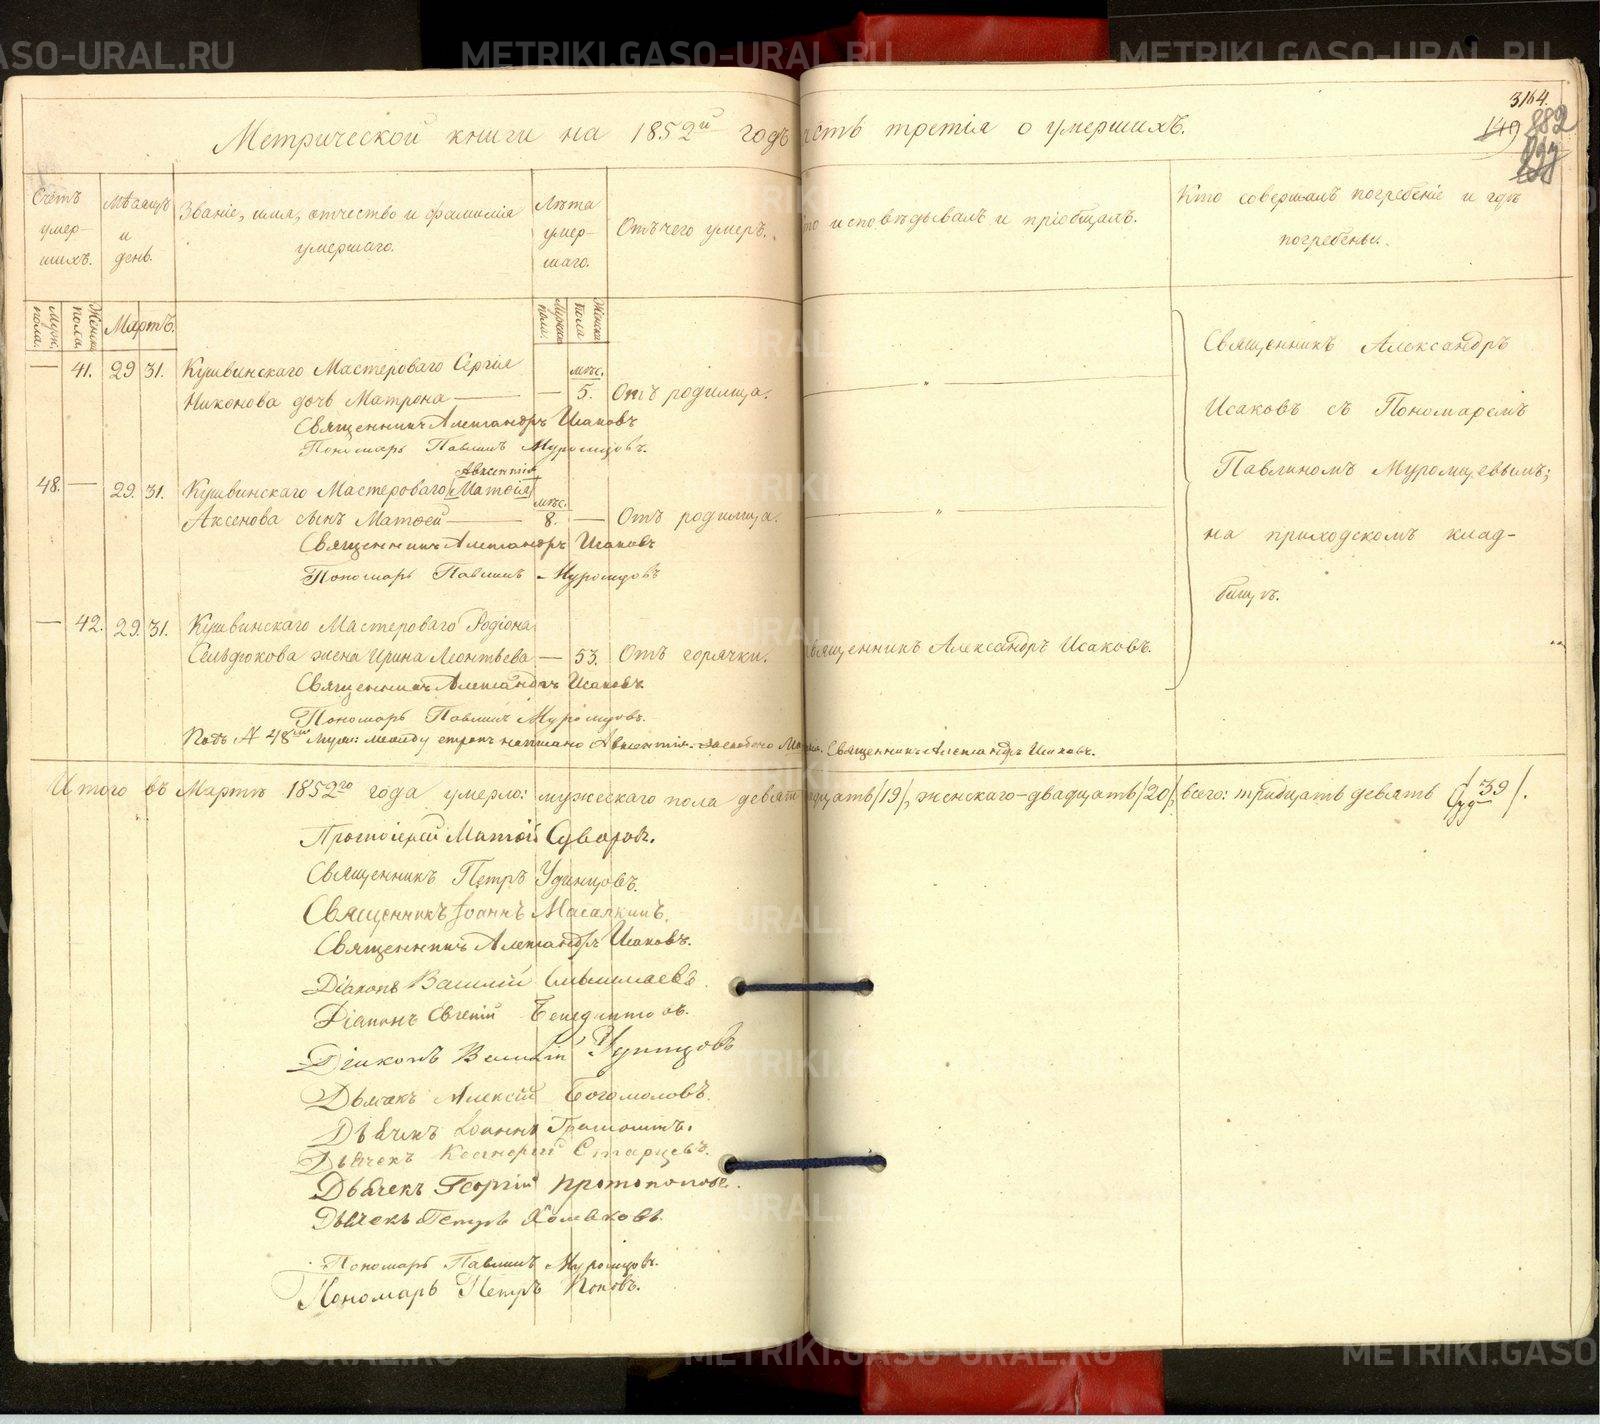 Метрической книги на 1852й годъ часть третія о умершихъ.
3164.
149 882
Счетъ умер-шихъ.
Мѣсяцъ и день.
Званіе, имя, отчество и фамилія умершаго.
Лѣта умер-шаго.
Отъ чего умеръ.
Кто исповѣдывалъ и пріобщалъ.
Кто совершалъ погребеніе и гдѣ погребены.
Муж. пола. Женск. пола. Мартъ. Мужск. пола. Женска пола
— 41. 29 31. Кушвинскаго Мастероваго Сергія мѣс.
Никонова дочь Матрона — — 5. Отъ родимца. "
Священникъ Александръ Исаковъ
Пономарь Павлинъ Муромцовъ.
Авксентія
48. — 29. 31. Кушвинскаго Мастероваго Матѳія мѣс.
Аксенова сынъ Матѳей — 8. — Отъ родимца. "
Священникъ Александръ Исаковъ
Пономарь Павлинъ Муромцовъ
— 42. 29. 31. Кушвинскаго Мастероваго Родіона
Сельдюкова жена Ирина Леонтьева — 53. Отъ горячки. Священникъ Александръ Исаковъ.
Священникъ Александръ Исаковъ.
Пономарь Павлинъ Муромцовъ.
Подъ № 48мъ муж: между строкъ написано Авксентія. Священникъ Александръ Исаковъ.
Священникъ Александръ
Исаковъ съ Пономаремъ
Павлиномъ Муромцевымъ;
на приходскомъ клад-
бищѣ.
Итого въ Мартѣ 1852го года умерло: мужескаго пола девятнадцать /19/, женскаго – двадцать /20/, всего: тридцать девять /39/.
Протоіерей Матѳій Суворовъ.
Священникъ Петръ Удинцовъ.
Священникъ Іоаннъ Масалкинъ.
Священникъ Александръ Исаковъ.
Діаконъ Василій
Діаконъ Евгеній Бенедиктовъ.
Діаконъ Василій
Дьячекъ Алексій Богомоловъ.
Дьячекъ Іоаннъ
Дьячекъ Старцевъ.
Дьячекъ Георгій Протопоповъ.
Дьячекъ Петръ
Пономарь Павлинъ Муромцовъ.
Пономарь Петръ Поповъ.
METRIKI.GASO-URAL.RU